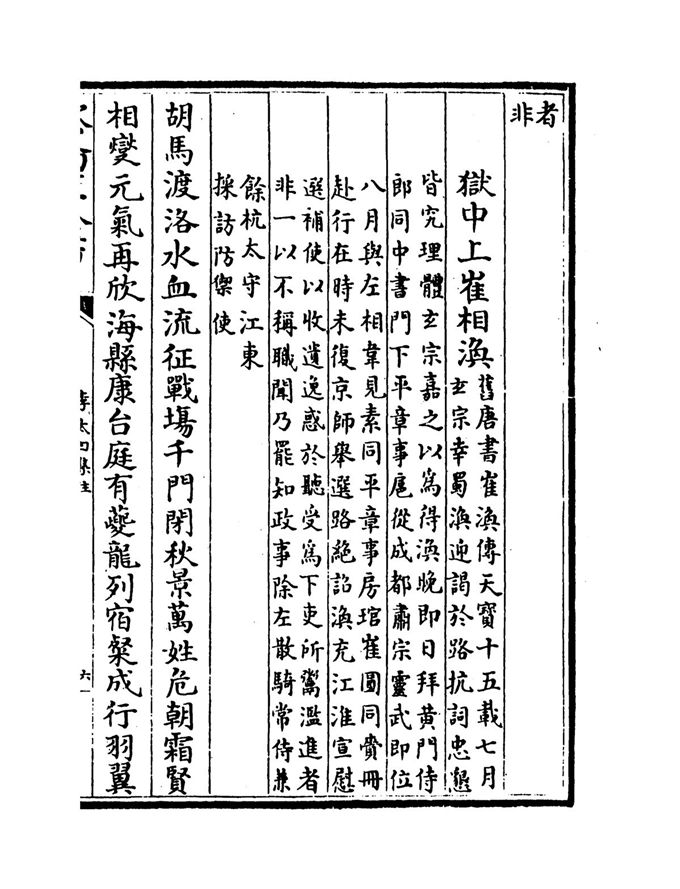 者
非
獄中上崔相渙
舊唐書崔渙傳天寳十五載七月
玄宗幸蜀渙迎謁於路抗詞忠懇
皆究理體玄宗嘉之以為得渙晚即日拜黄門侍
郎同中書門下平章事扈從成都肅宗靈武即位
八月與左相韋見素同平章事房琯崔圓同賫冊
赴行在時未復京師舉選路絶詔渙充江淮宣慰
選補使以收遺逸惑於聽受為下吏所鬻濫進者
非一以不稱職聞乃罷知政事除左散騎常侍兼
餘杭太守江東
採訪防禦使
胡馬渡洛水血流征戰塲千門閉秋景萬姓危朝霜賢
相燮元氣再欣海縣康台庭有夔龍列宿粲成行羽翼
李太白集注
六